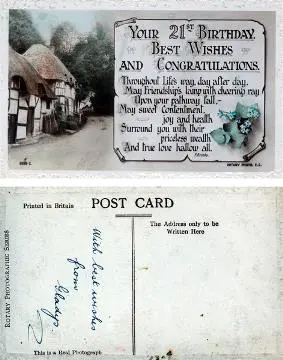 YOUR 21ST BIRTHDAY.
BEST WISHES
AND CONGRATULATIONS.
Throughout Life's way, day after day,
May Friendship's lamp with cheering ray
Upon your pathway fall,—
May sweet contentment,
joy and health
Surround you with their
priceless wealth
And true love hallow all.
ROTARY PHOTO, E.C.
POST CARD
Printed in Britain
The Address only to be
Written Here
ROTARY PHOTOGRAPHIC SERIES
With best wishes
from
Gladys.
This is a Real Photograph